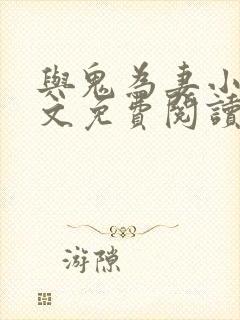 與鬼為妻小
文免費閱讀
游隙